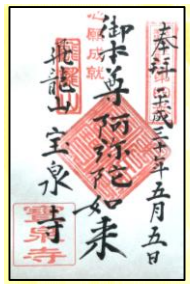 奉拝 平成三十年五月五日
心願成就
御本尊 阿弥陀如来
飛龍山 宝泉寺
寳泉寺